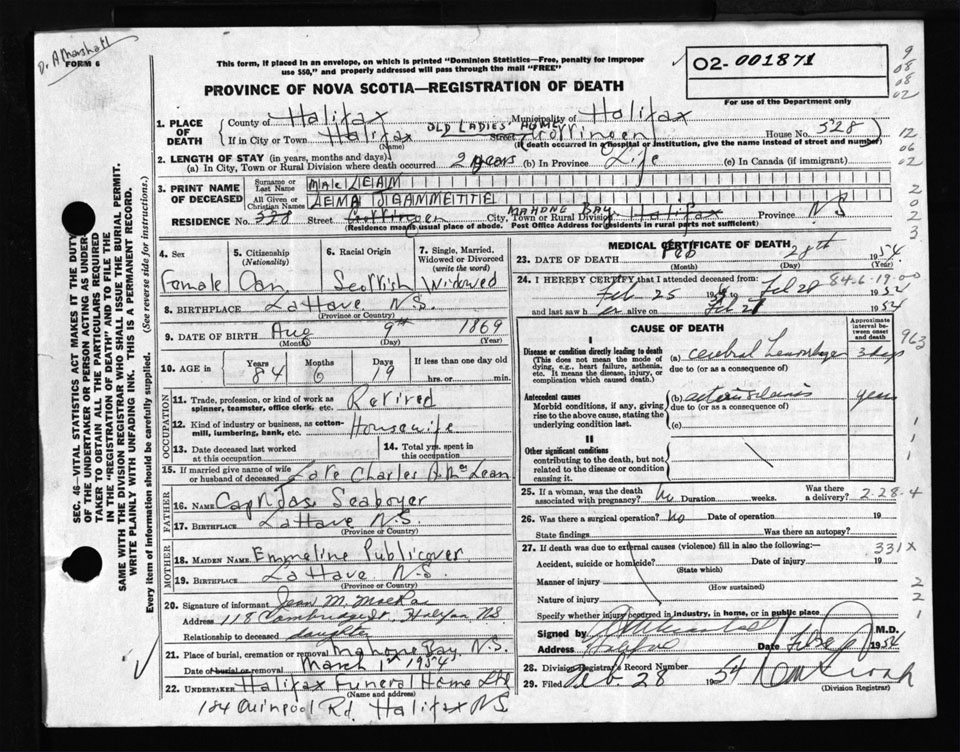 Dr A Marshall
FORM 6
This form, if placed in an envelope, on which is printed "Dominion Statistics—Free, penalty for improper
use $50," and properly addressed will pass through the mail "FREE"
O2- 001871
PROVINCE OF NOVA SCOTIA—REGISTRATION OF DEATH
For use of the Department only
9
08
08
02
12
06
02
2
0
2
3
1. PLACE OF DEATH
County of Halifax Municipality of Halifax
If in City or Town Halifax OLD LADIES' HOME Street Gottingen House No. 528
(Name) (If death occurred in a hospital or institution, give the name instead of street and number)
2. LENGTH OF STAY (in years, months and days)
(a) In City, Town or Rural Division where death occurred 2 years (b) In Province Life (c) In Canada (if immigrant)
3. PRINT NAME OF DECEASED
Surname or Last Name MacLEAN
All Given or Christian Names LEMA JEANNETTE
RESIDENCE No. 528 Street Gottingen City, Town or Rural Division MAHONE BAY Halifax Province NS
(Residence means usual place of abode. Post Office Address for residents in rural parts not sufficient)
4. Sex Female
5. Citizenship (Nationality) Can
6. Racial Origin Scottish
7. Single, Married, Widowed or Divorced (write the word) Widowed
8. BIRTHPLACE LaHave N.S.
(Province or Country)
9. DATE OF BIRTH Aug 9th 1869
(Month) (Day) (Year)
10. AGE in Years 84 Months 6 Days 19 If less than one day old
hrs. or min.
OCCUPATION
11. Trade, profession, or kind of work as spinner, teamster, office clerk, etc. Retired
12. Kind of industry or business, as cotton-mill, lumbering, bank, etc. Housewife
13. Date deceased last worked at this occupation
14. Total yrs. spent in this occupation
15. If married give name of wife or husband of deceased Late Charles A. McLean
FATHER
16. Name Capt Jas Seaboyer
17. Birthplace LaHave N.S.
(Province or Country)
MOTHER
18. Maiden Name Emmeline Publicover
19. Birthplace LaHave N.S.
(Province or Country)
20. Signature of informant Jean M. MacRae
Address 118 Cambridge St, Halifax NS
Relationship to deceased daughter
21. Place of burial, cremation or removal Mahone Bay, N.S.
Date of burial or removal March 1st 1954
22. Undertaker Halifax Funeral Home Ltd
(Name and address)
184 Quinpool Rd. Halifax NS
MEDICAL CERTIFICATE OF DEATH
23. DATE OF DEATH Feb 28th 1954
(Month) (Day) (Year)
24. I HEREBY CERTIFY that I attended deceased from: 84-6-19-00
Feb 25 1954 to Feb 28 1954
and last saw her alive on Feb 1954
CAUSE OF DEATH
Approximate interval between onset and death
963
I
Disease or condition directly leading to death (a) cerebral hemorrhage 3 days
(This does not mean the mode of dying, e.g., heart failure, asthenia, etc. It means the disease, injury, or complication which caused death.) due to (or as a consequence of)
Antecedent causes
Morbid conditions, if any, giving rise to the above cause, stating the underlying condition last. (b) years
due to (or as a consequence of)
(c)
II
Other significant conditions
contributing to the death, but not related to the disease or condition causing it.
1
1
25. If a woman, was the death associated with pregnancy? No Duration weeks. Was there a delivery? 2-28-4
26. Was there a surgical operation? No Date of operation 19
State findings Was there an autopsy?
27. If death was due to external causes (violence) fill in also the following:— 331X
Accident, suicide or homicide? Date of injury 19
(State which)
Manner of injury
(How sustained)
Nature of injury
2
2
1
Specify whether injury occurred in industry, in home, or in public place
Signed by M.D.
Address Halifax Date 1954
28. Division Registrar's Record Number
29. Filed Feb. 28 1954
(Division Registrar)
SEC. 46—VITAL STATISTICS ACT MAKES IT THE DUTY
OF THE UNDERTAKER OR PERSON ACTING AS UNDER-
TAKER TO OBTAIN ALL THE PARTICULARS REQUIRED
IN THE "REGISTRATION OF DEATH" AND TO FILE THE
SAME WITH THE DIVISION REGISTRAR WHO SHALL ISSUE THE BURIAL PERMIT.
WRITE PLAINLY WITH UNFADING INK. THIS IS A PERMANENT RECORD.
Every item of information should be carefully supplied. (See reverse side for instructions.)